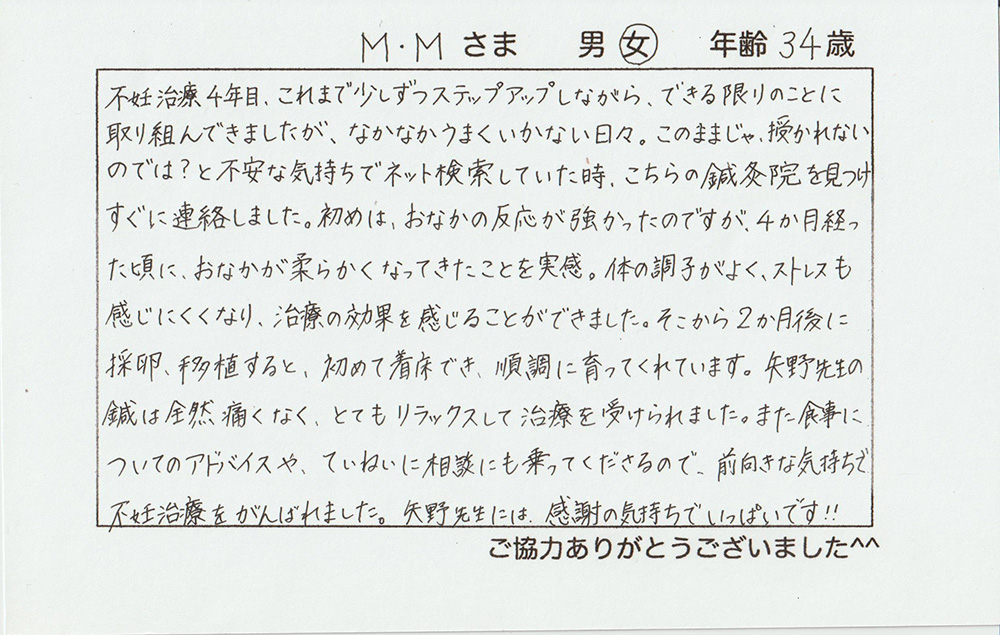 M・M さま 男 女 年齢 34歳
不妊治療4年目、これまで少しずつステップアップしながら、できる限りのことに
取り組んできましたが、なかなかうまくいかない日々。このままじゃ、授かれない
のでは?と不安な気持ちでネット検索していた時、こちらの鍼灸院を見つけ
すぐに連絡しました。初めは、おなかの反応が強かったのですが、4か月経っ
た頃に、おなかが柔らかくなってきたことを実感。体の調子がよく、ストレスも
感じにくくなり、治療の効果を感じることができました。そこから2か月後に
採卵、移植すると、初めて着床でき、順調に育ってくれています。矢野先生の
鍼は全然痛くなく、とてもリラックスして治療を受けられました。また食事に
ついてのアドバイスや、ていねいに相談にも乗ってくださるので、前向きな気持ちで
不妊治療をがんばれました。矢野先生には、感謝の気持ちでいっぱいです!!
ご協力ありがとうございました^^